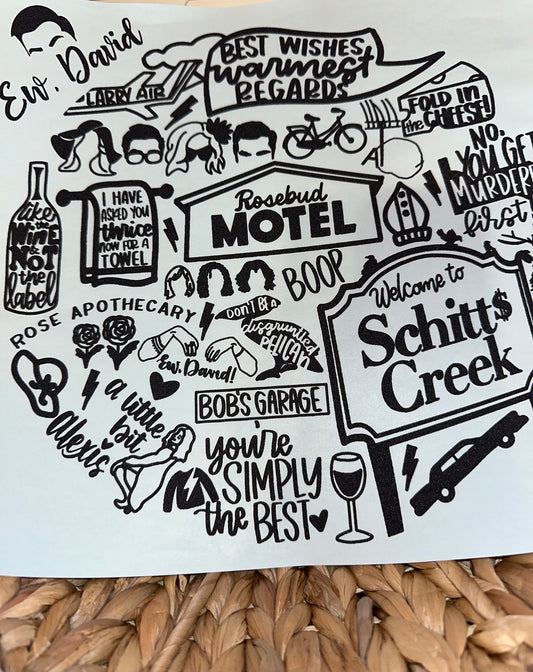 Ew, David
BEST WISHES,
warmest
REGARDS
LARRY AIR
FOLD IN
the CHEESE!
NO,
YOU GET
MURDERED
first
like
the
WINE
NOT
the
label
I HAVE
ASKED YOU
thrice
NOW FOR A
TOWEL
Rosebud
MOTEL
BOOP
Welcome to
Schitt$
Creek
ROSE APOTHECARY
DON'T BE A
disgruntled
PELICAN
Ew, David!
BOB'S GARAGE
a little
bit
Alexis
you're
SIMPLY
the BEST